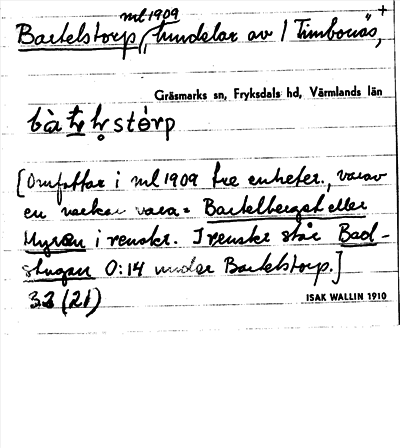 ml 1909 +
Bartelstorp, hundelar av 1 Timbonäs,
Gräsmarks sn, Fryksdals hd, Värmlands län
[Omfattar i ml 1909 tre enheter, varav
en verkar vara = Bartelberget eller
Myren i renskr. I renskr står Bad-
stugan 0:14 under Bartelstorp.]
33 (21)
ISAK WALLIN 1910